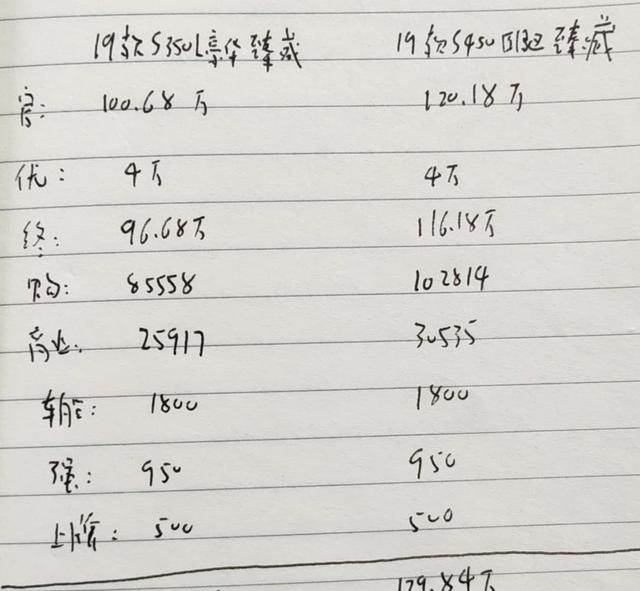 19款S350L豪华臻藏 19款S450四驱臻藏
官: 100.68万 120.18万
优: 4万 4万
终: 96.68万 116.18万
购: 85558 102814
商业: 25917 30535
车船: 1800 1800
强: 950 950
上牌: 500 500
129.84万